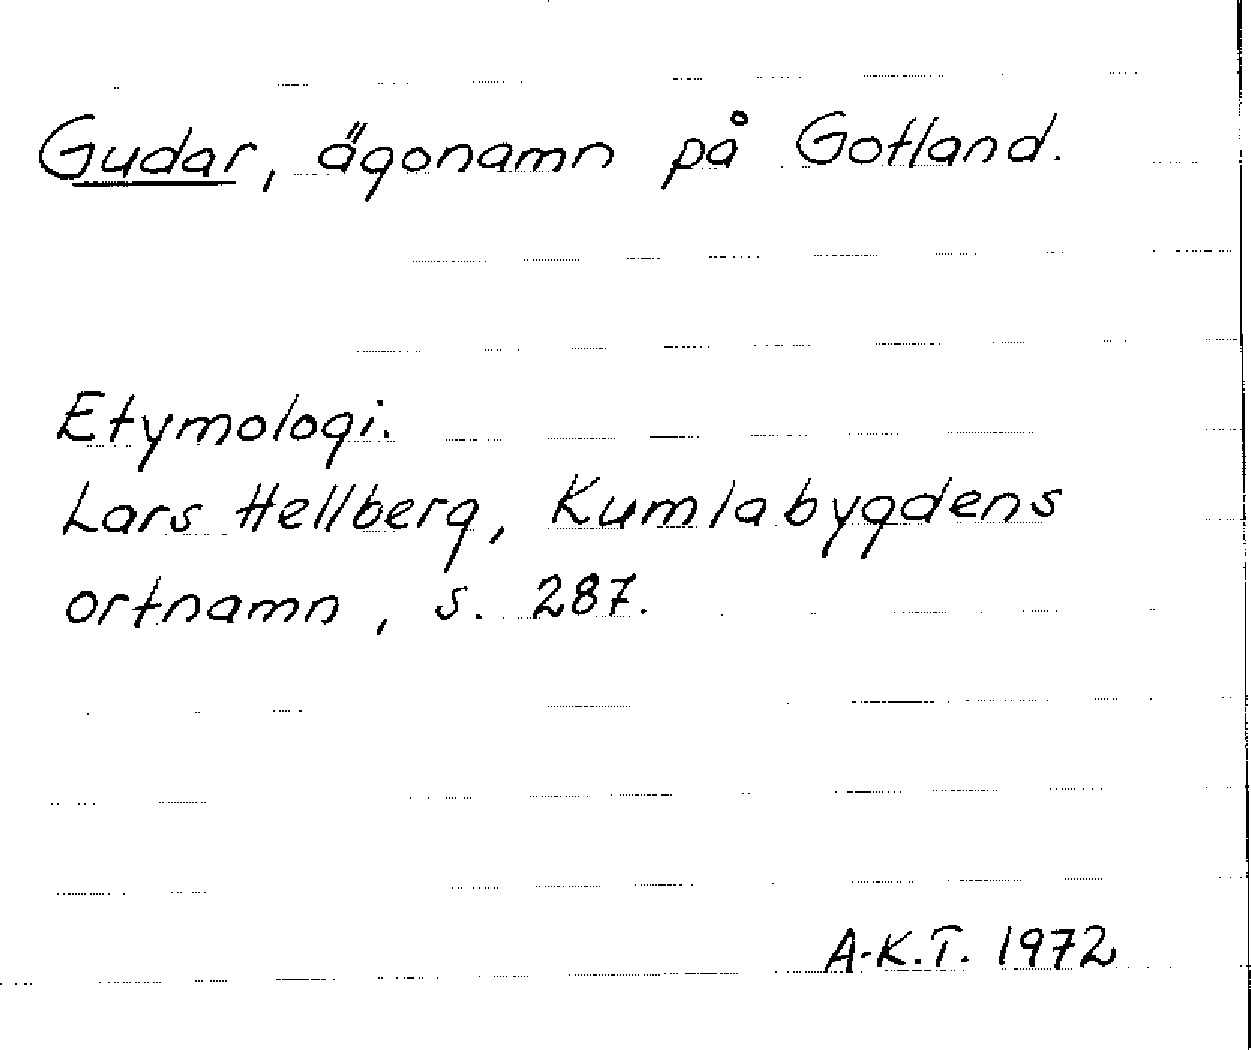 Gudar, ägonamn på Gotland.
Etymologi.
Lars Hellberg, Kumlabygdens
ortnamn, s. 287.
A-K.T. 1972